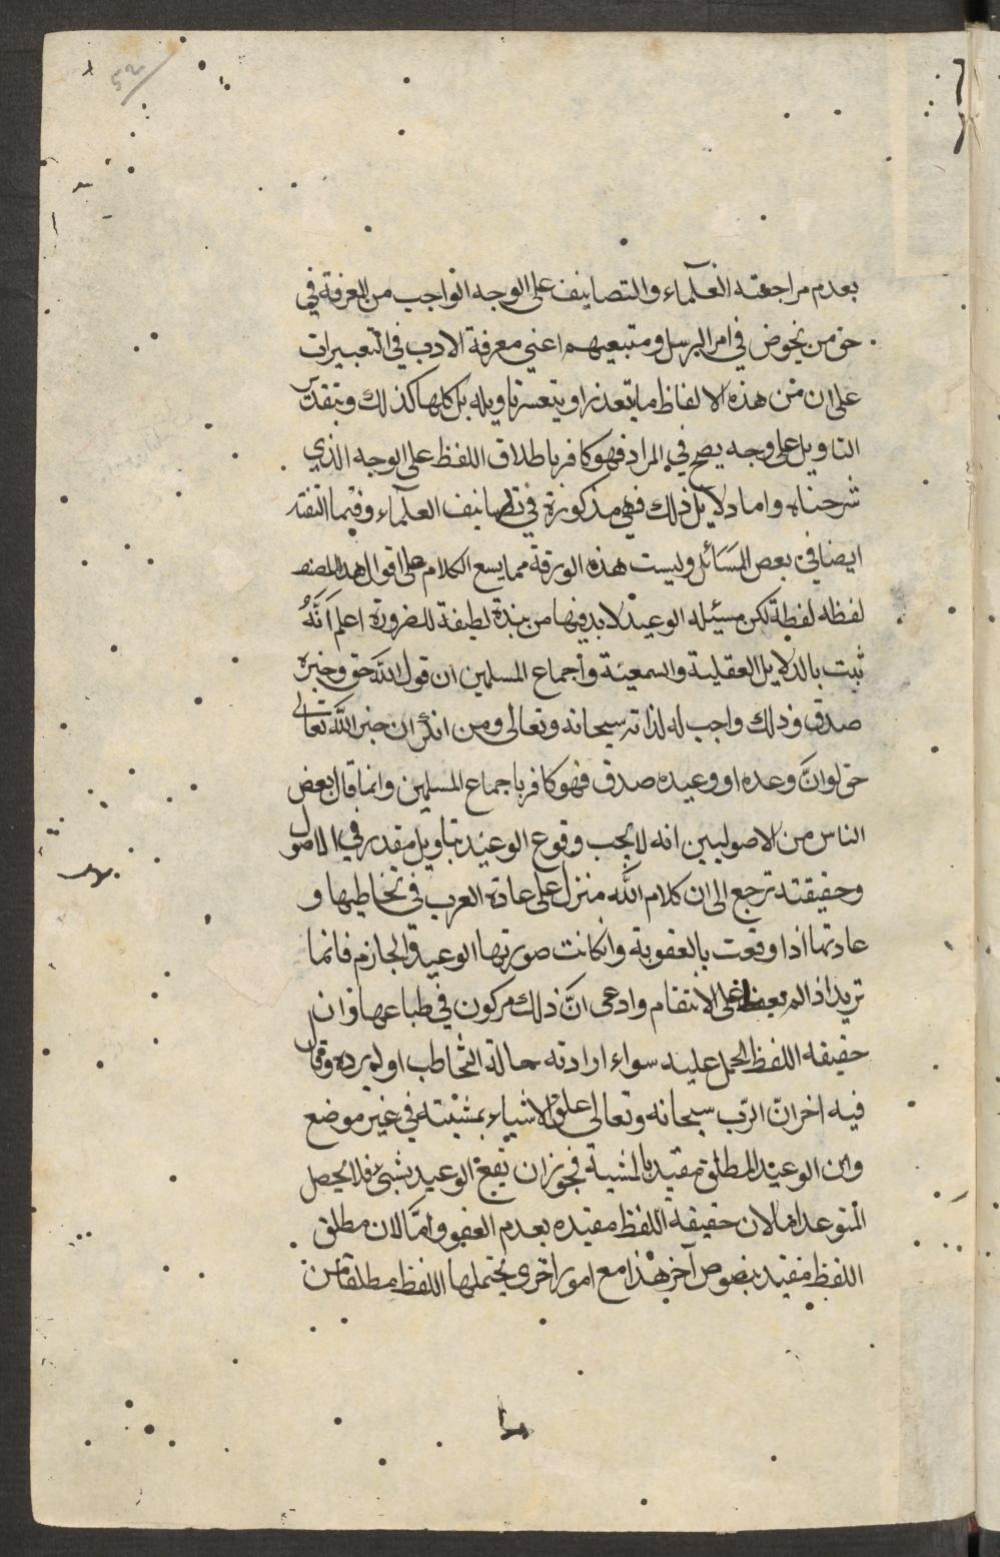 بعدم مراجعته العلماء والتصانيف على الوجه الواجب من المعرفة في
حق من يخوض في امر الرسل ومتبعيهم اعني معرفة الادب في التعبيرات
على ان من هذه الالفاظ ما يتعذر او يتعسر تاويله بل كلها كذلك وبتقدير
التاويل على وجه يصح في المراد فهو كافر باطلاق اللفظ على الوجه الذي
شرحناه واما دلايل ذلك فهي مذكورة في تصانيف العلماء وفيما
ايضا في بعض المسائل وليست هذه الورقة مما يسع الكلام على اقوال هذا
لفظه لفظة لكن مسئله الوعيد لابد فيها من نبذة لطيفة للضرورة اعلم انه
ثبت بالدلايل العقلية والسمعية واجماع المسلمين ان قول الله حق وخبره
صدق وذلك واجب له لذاته سبحانه وتعالى ومن انكر ان خبر الله تعالى
حق لو ان وعده او وعيده صدق فهو كافر باجماع المسلمين وانما قال بعض
الناس من الاصوليين انه لا يجب وقوع الوعيد بتاويل مقدر في الاصول
وحقيقته ترجع الى ان كلام الله منزل على عادة العرب في تخاطبها و
عادتها اذا وقعت بالعقوبة وان كانت صورتها الوعيد الجازم فانما
تريد اذا لم على الانتقام وادعى ان ذلك مركون في طباعها وان
حقيقه اللفظ عليه سواء ارادته حالة التخاطب او لم ترده وقول
فيه اخر ان الرب سبحانه وتعالى علق الاشياء بمشيته في غير موضع
وان الوعيد المطلق مقيد بالمشية فيجوز ان يقع الوعيد بشيء فلا يحصل
المتوعد اما لان حقيقه اللفظ مقيده بعدم العفو واما لان مطلق
اللفظ مقيد بنصوص آخر هذا مع امور اخرى يحتملها اللفظ مطلقا من